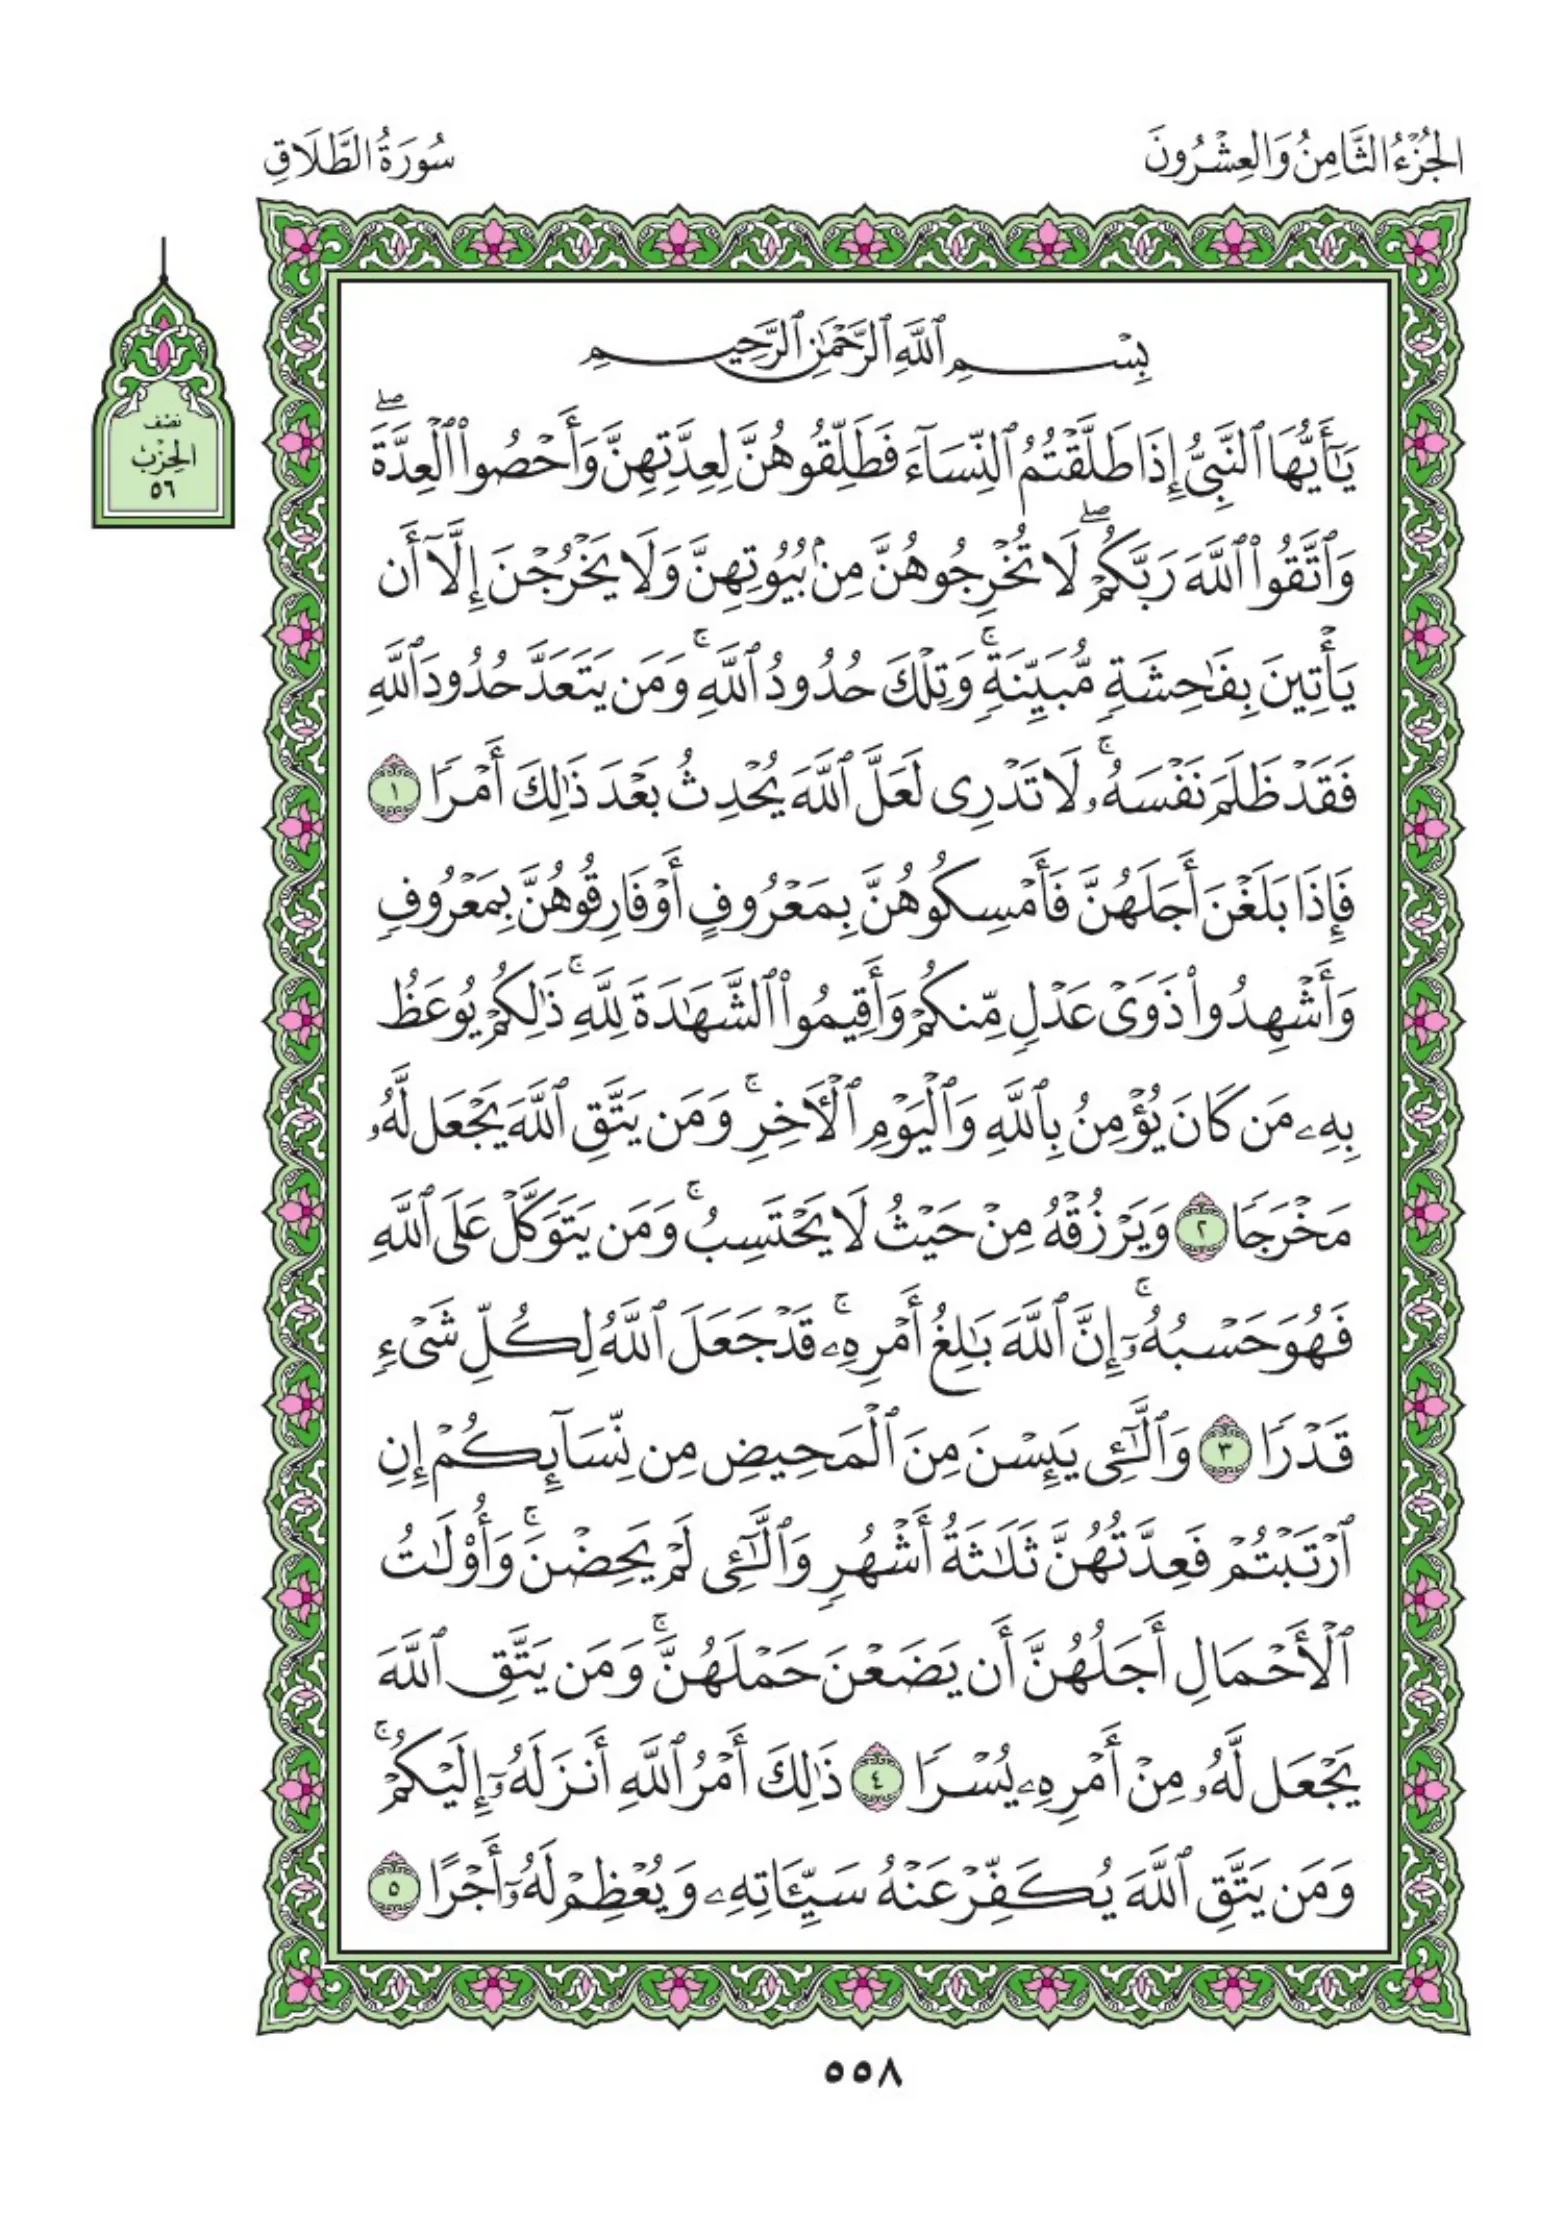 الجُزْءُ الثَّامِنُ وَالعِشْرُونَ
سُورَةُ الطَّلَاقِ
نصف
الحِزْب
٥٦
بِسْمِ ٱللَّهِ ٱلرَّحْمَٰنِ ٱلرَّحِيمِ
يَٰٓأَيُّهَا ٱلنَّبِىُّ إِذَا طَلَّقْتُمُ ٱلنِّسَآءَ فَطَلِّقُوهُنَّ لِعِدَّتِهِنَّ وَأَحْصُوا۟ ٱلْعِدَّةَ ۖ
وَٱتَّقُوا۟ ٱللَّهَ رَبَّكُمْ ۖ لَا تُخْرِجُوهُنَّ مِنۢ بُيُوتِهِنَّ وَلَا يَخْرُجْنَ إِلَّآ أَن
يَأْتِينَ بِفَٰحِشَةٍ مُّبَيِّنَةٍ ۚ وَتِلْكَ حُدُودُ ٱللَّهِ ۚ وَمَن يَتَعَدَّ حُدُودَ ٱللَّهِ
فَقَدْ ظَلَمَ نَفْسَهُۥ ۚ لَا تَدْرِى لَعَلَّ ٱللَّهَ يُحْدِثُ بَعْدَ ذَٰلِكَ أَمْرًا ١
فَإِذَا بَلَغْنَ أَجَلَهُنَّ فَأَمْسِكُوهُنَّ بِمَعْرُوفٍ أَوْ فَارِقُوهُنَّ بِمَعْرُوفٍ
وَأَشْهِدُوا۟ ذَوَىْ عَدْلٍ مِّنكُمْ وَأَقِيمُوا۟ ٱلشَّهَٰدَةَ لِلَّهِ ۚ ذَٰلِكُمْ يُوعَظُ
بِهِۦ مَن كَانَ يُؤْمِنُ بِٱللَّهِ وَٱلْيَوْمِ ٱلْـَٔاخِرِ ۚ وَمَن يَتَّقِ ٱللَّهَ يَجْعَل لَّهُۥ
مَخْرَجًا ٢ وَيَرْزُقْهُ مِنْ حَيْثُ لَا يَحْتَسِبُ ۚ وَمَن يَتَوَكَّلْ عَلَى ٱللَّهِ
فَهُوَ حَسْبُهُۥٓ ۚ إِنَّ ٱللَّهَ بَٰلِغُ أَمْرِهِۦ ۚ قَدْ جَعَلَ ٱللَّهُ لِكُلِّ شَىْءٍ
قَدْرًا ٣ وَٱلَّٰٓـِٔى يَئِسْنَ مِنَ ٱلْمَحِيضِ مِن نِّسَآئِكُمْ إِنِ
ٱرْتَبْتُمْ فَعِدَّتُهُنَّ ثَلَٰثَةُ أَشْهُرٍ وَٱلَّٰٓـِٔى لَمْ يَحِضْنَ ۚ وَأُو۟لَٰتُ
ٱلْأَحْمَالِ أَجَلُهُنَّ أَن يَضَعْنَ حَمْلَهُنَّ ۚ وَمَن يَتَّقِ ٱللَّهَ
يَجْعَل لَّهُۥ مِنْ أَمْرِهِۦ يُسْرًا ٤ ذَٰلِكَ أَمْرُ ٱللَّهِ أَنزَلَهُۥٓ إِلَيْكُمْ ۚ
وَمَن يَتَّقِ ٱللَّهَ يُكَفِّرْ عَنْهُ سَيِّـَٔاتِهِۦ وَيُعْظِمْ لَهُۥٓ أَجْرًا ٥
٥٥٨